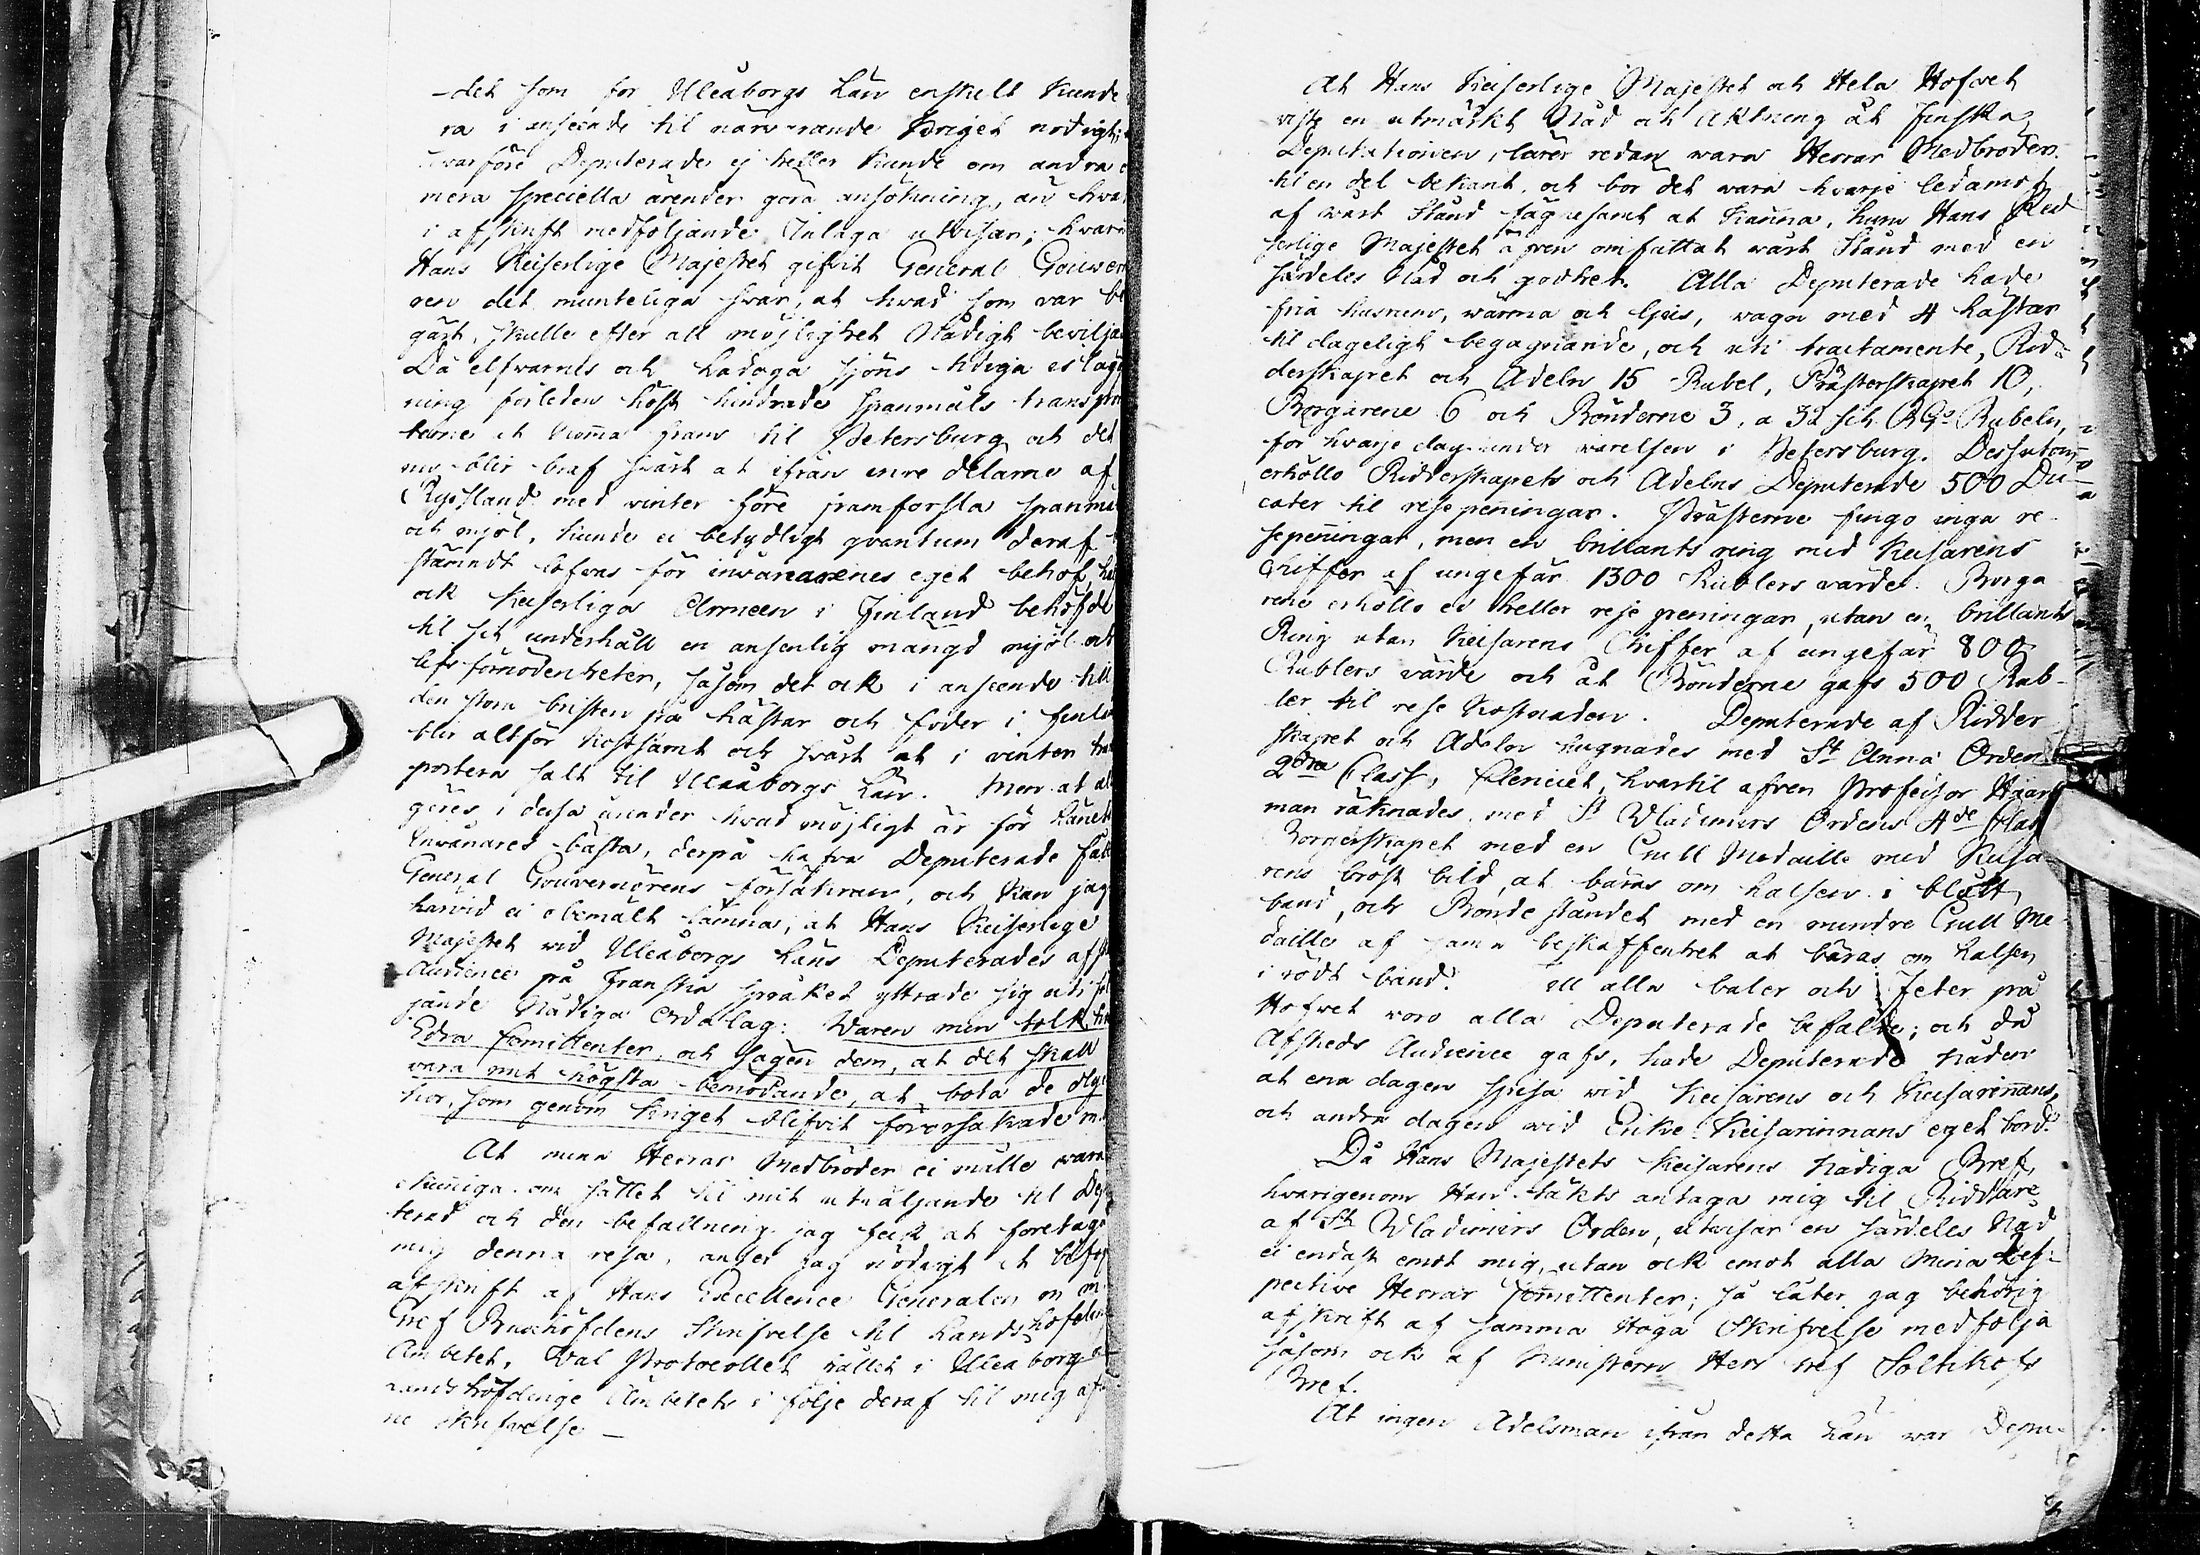 -det som för Uleåborgs Län enskelt Kunde
ra i anseende til närwarande Kriget nödigt,
hvarföre Deputerade ej heller Kunde om andra
mera speciella ärender göra ansökning, än hwa
i afskrift medföljande Inlaga utwisar; hwar
Hans Keiserlige Majestet gifvit General Gouver
ren det munteliga svar, at hvad som var be
gärt, skulle efter all möjlighet Nådigt beviljas
Då elfvarnes och Ladoga sjöns tidiga islägg
ning förleden höst hindrade Spanmåls transpor
terne at komma fram til Petersburg och det
nu blir braf svårt at ifrån inre delarne af
Ryssland med winter före framforsla spanmål
och mjöl, kunde ei betydligt qvantum deraf
städ lofvas för invånarenes eget behof,
ock Keiserliga Armeen i Finland behöfde
til sit underhåll en ansenlig mängd mjöl och
lifs förnödenheter, såsom det ock i anseende till
den stora bristen på hästar och foder i Finland
blir altför Kostsamt och svårt at i vinter tran
portera salt til Uleåborgs Län. Men at al
göres i dessa ärender hvad möjligt är för Länets
Invånares bästa, derpå hafva Deputerade fått
General Gouverneurens försäkran, och Kan jag
härvid ei obemält lämna, at Hans Keiserlige
Majestet wid Uleåborgs Läns Deputerades afsk
Audience på Franska språket yttrade sig uti föl
jande Nådiga Ordalag: Waren min tolk hos
Edra Comittenter, och sägen dem, at det skall
vara mit högsta bemödande, at bota de oly
kor, som genom Kriget blifvit förorsakade m.
At mina Herrar Medbröder ei måtte wara
okunniga om sättet til mit utwäljande til Dep
terad och den befallning jag feck at företaga
mig denna resa, anser jag nödigt at bifoga
afskrift af Hans Excellence Generalen m m
Gref Buxhöfdens Skrifvelse til Landshöfdinge
Ambetet, Wal Protocollet hållet i Uleåborg
Landshöfdinge Ambetets i följe deraf til mig af
ne skrifvelse –
At Hans Keiserlige Majestet och Hela Hofvet
viste en utmärkt Nåd och Aktning åt Finska
Deputationen, lärer redan wara Herrar Medbröder
til en del bekant, och bör det wara hvarje ledamot
af wårt Stånd fägnesamt at Känna, huru Hans Kei
serlige Majestet äfven omfattat wårt Stånd med en
särdeles Nåd och godhet. Alla Deputerade hade
fria husrum, wärma och ljus, wagn med 4 hästar
til dageligt begagnande, och uti tractamente, Rid-
derskapet och Adeln 15 Rubel, Prästerskapet 10,
Borgarene 6 och Bönderne 3, a 32 sch RGs Rubeln,
för hwarje dag under warelsen i Petersburg. Dessutom
erhöllo Ridderskapets och Adelns Deputerade 500 Du-
cater til resepenningar. Prästerne fingo inga re-
sepenningar, men en brillants ring med Keisarens
Chiffer af ungefär 1300 Rublers värde. Borga
rene erhöllo ei heller rese penningar, utan en brillants
Ring utan Keisarens Chiffer af ungefär 800
Rublers värde och åt Bönderne gafs 500 Rub-
ler til rese Kostnaden. Deputerade af Ridder
skapet och Adelen hugnades med St Anna Orden
2dra Class, Clericiet, hvartil äfven Professor Häar
man räknades, med St Wladimirs Ordens 4de Class
Borgerskapet med en Gull Medaille med Keisa
rens bröst bild, at bäras om halsen i blått
band, och Bonde ståndet med en mindre Gull Me
daille af samma beskaffenhet at bäras om halsen
i rödt band. Til alla baler och Feter på
Hofvet woro alla Deputerade befalde; och då
Afskeds Audience gafs, hade Deputerade nåden
at ena dagen spisa wid Keisarens och Keisarinnans,
och andra dagen wid Enke Keisarinnans eget bord.
Då Hans Majestets Keisarens Nådiga Bref,
hvarigenom Han täkts antaga mig til Riddare
af St Wladimirs Orden, utwisar en särdeles Nåd
ei endast emot mig, utan ock emot alla Mina Res-
pective Herrar Comittenter; så låter jag behörig
afskrift af samma Höga Skrifvelse medfölja
såsom ock af Ministern Herr Gref Soltikofs
Bref.
At ingen Adelsman ifrån detta Län war Depu-